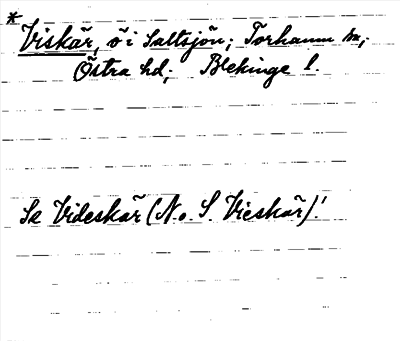 * Viskär, ö i Saltsjön; Torhamn sn;
Östra hd; Blekinge l.
Se Videskär (N. o. S. Vieskär)!